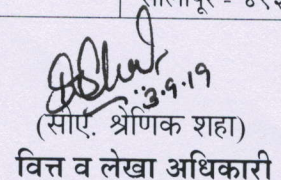 3.9.19
(सीए. श्रेणिक शहा)
वित्त व लेखा अधिकारी